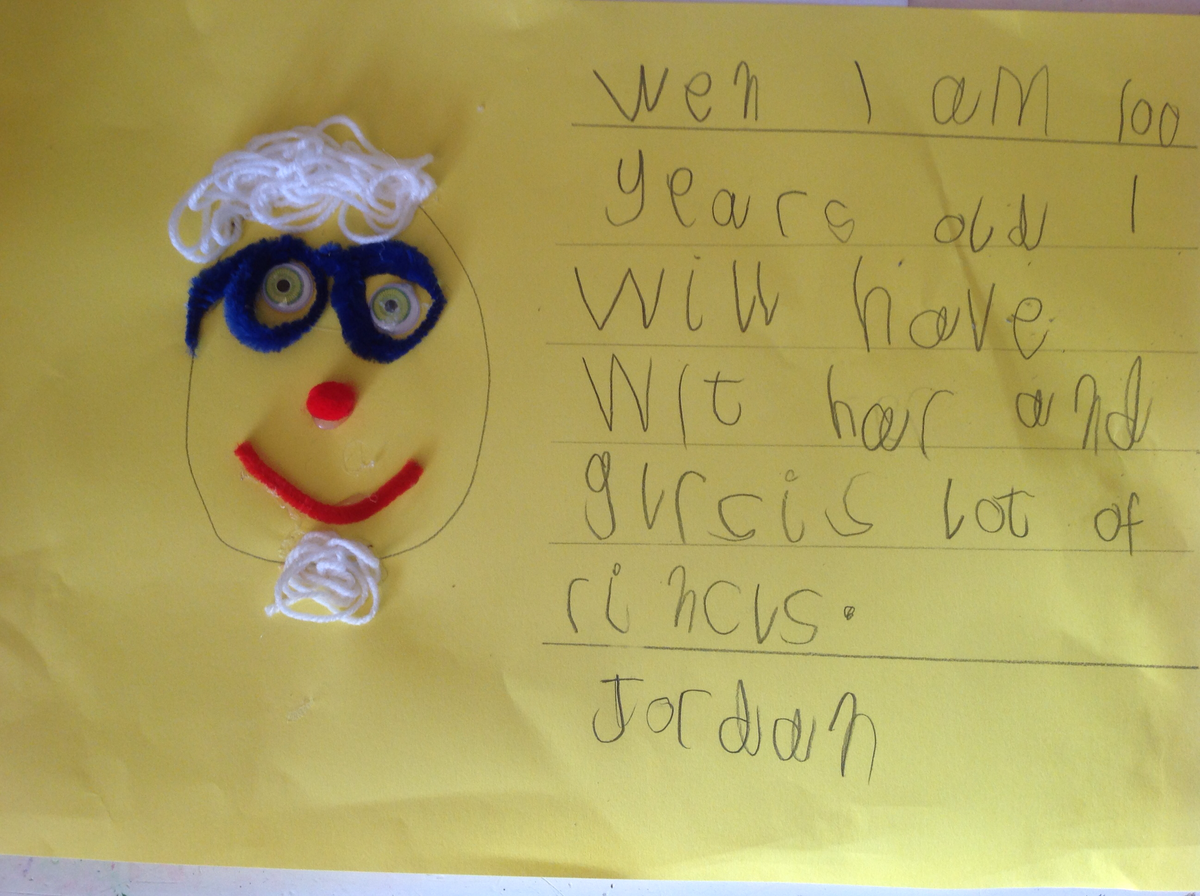 Wen I am 100
years old I
Will have
Wit har and
glrsis lot of
rincls.
Jordan